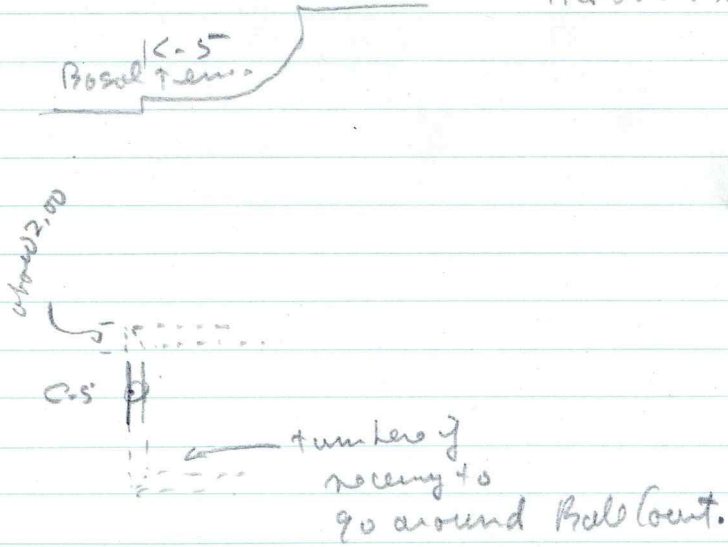 C-5
Basal Terr.
above 2,00
5
C-5
turn here if
necessary to
go around Ball Court.